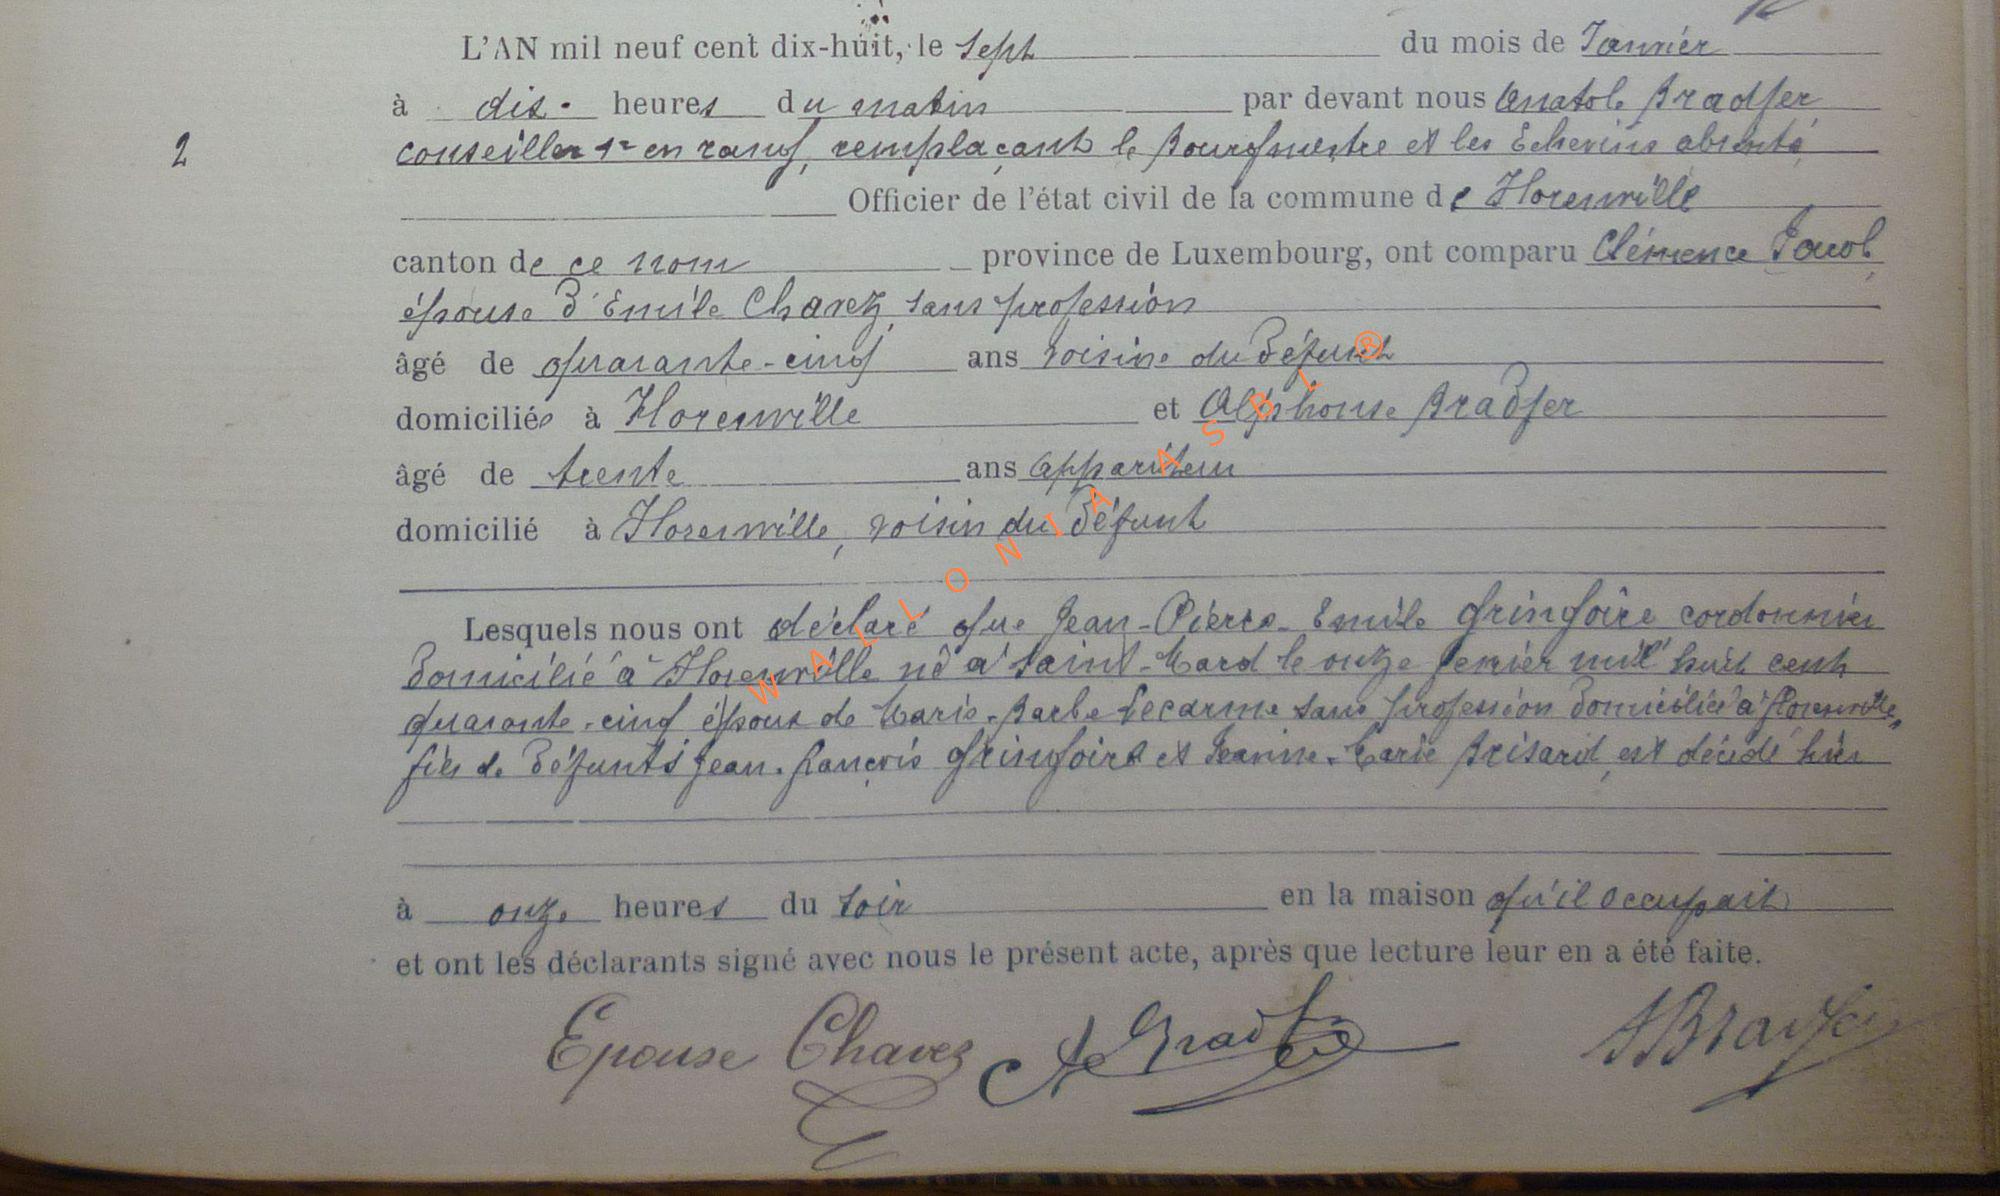 L'AN mil neuf cent dix-huit, le sept du mois de Janvier
à dix heures du matin par devant nous Anatole Bradfer
2
conseiller 1er en rang, remplaçant le Bourgmestre et les Echevins absents
Officier de l'état civil de la commune de Florenville
canton de ce nom province de Luxembourg, ont comparu Clémence Jacob
épouse d'Emile Chavez, sans profession
âgé de quarante-cinq ans voisine du défunt
domiciliée à Florenville et Alphonse Bradfer
âgé de trente ans appariteur
domicilié à Florenville, voisin du défunt
Lesquels nous ont déclaré que Jean-Pierre-Emile Gringoire cordonnier
domicilié à Florenville né à Saint-Mard le onze février mil huit cent
quarante-cinq époux de Marie-Barbe Lecarme sans profession domiciliée à Florenville,
fils de défunts Jean-François Gringoire et Jeanne-Marie Brisard, est décédé hier
à onze heures du soir en la maison qu'il occupait
et ont les déclarants signé avec nous le présent acte, après que lecture leur en a été faite.
Epouse Chavez A Bradfer A Bradfer
WALLONIA ASBL ®